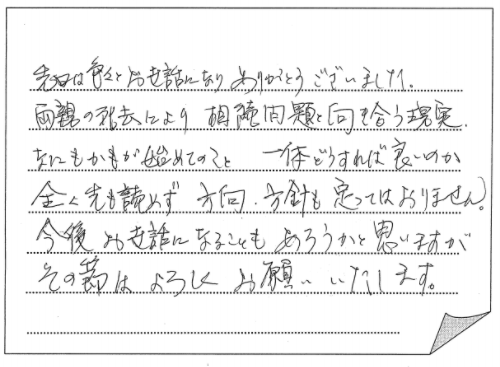 先日は色々とお世話になりありがとうございました。
両親の死去により相続問題と向き合う現実、
なにもかもが始めてのこと 一体どうすれば良いのか
全く先も読めず 方向、方針も定ってはおりません。
今後お世話になることもあろうかと思いますが
その節はよろしくお願いいたします。